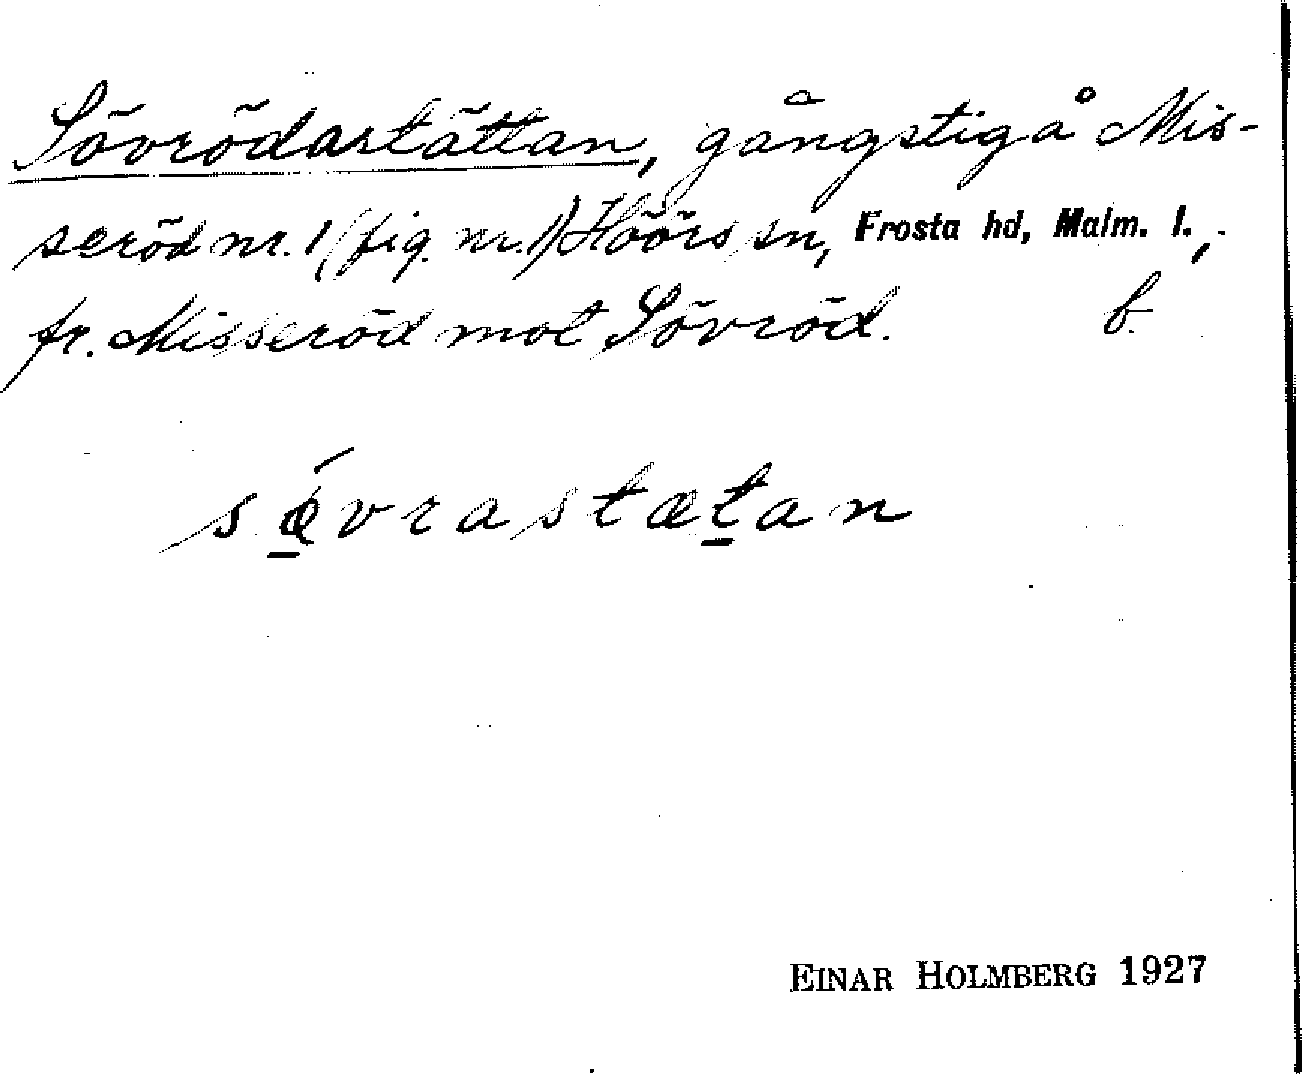 Sövrödastättan, gångstig å Mis-
seröd nr. 1 (fig. nr. 1) Höörs sn, Frosta hd, Malm. l.,
fr. Misseröd mot Sövröd. b.
sǿ̱vrastæṯan
EINAR HOLMBERG 1927